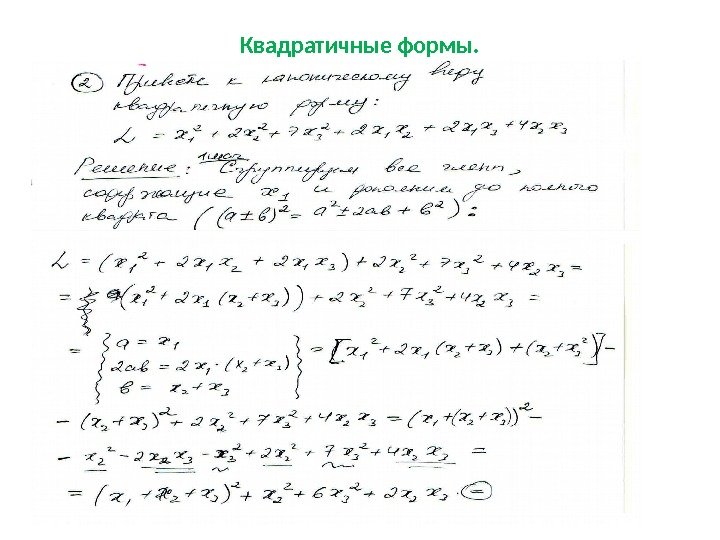 Квадратичные формы.
② Привести к каноническому виду
квадратичную форму:
L = x₁² + 2x₂² + 7x₃² + 2x₁x₂ + 2x₁x₃ + 4x₂x₃
Решение: 1 шаг Сгруппируем все элем.,
содержащие x₁ и дополним до полного
квадрата ((a ± b)² = a² ± 2ab + b²):
L = (x₁² + 2x₁x₂ + 2x₁x₃) + 2x₂² + 7x₃² + 4x₂x₃ =
= (x₁² + 2x₁(x₂+x₃)) + 2x₂² + 7x₃² + 4x₂x₃ =
= { a = x₁
2ab = 2x₁·(x₂+x₃)
b = x₂ + x₃ } = [x₁² + 2x₁(x₂+x₃) + (x₂+x₃²)] −
− (x₂+x₃)² + 2x₂² + 7x₃² + 4x₂x₃ = (x₁+(x₂+x₃))² −
− x₂² − 2x₂x₃ − x₃² + 2x₂² + 7x₃² + 4x₂x₃ =
= (x₁ + x₂ + x₃)² + x₂² + 6x₃² + 2x₂x₃. =